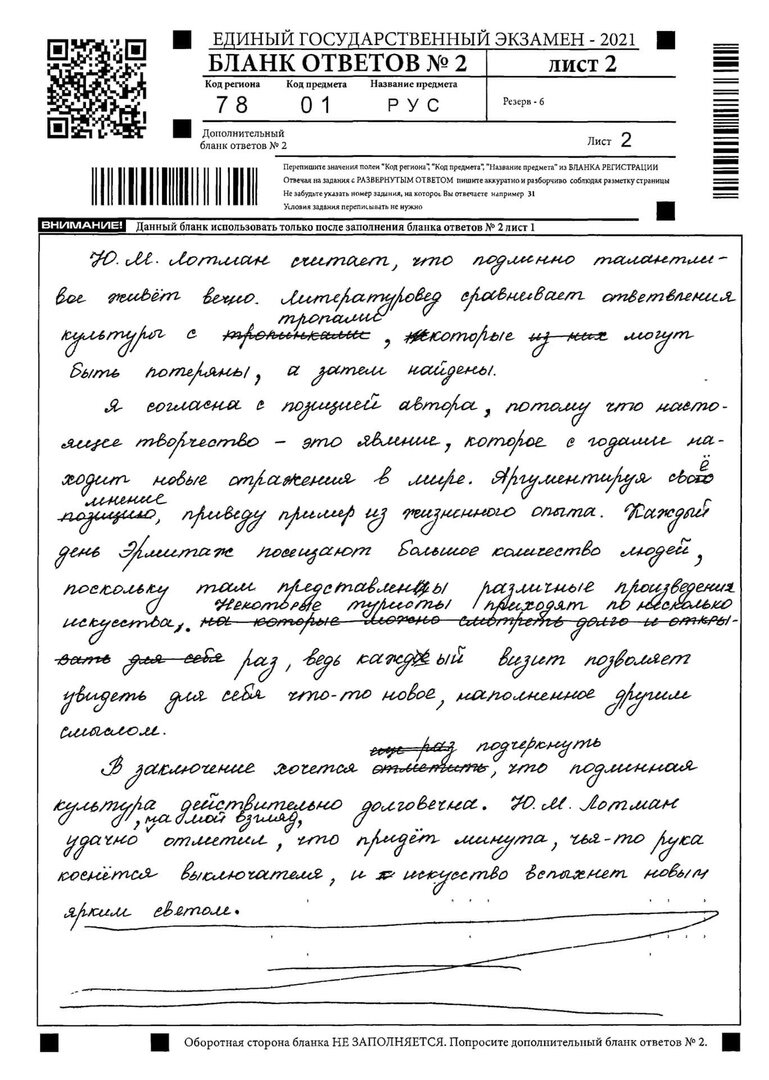 ЕДИНЫЙ ГОСУДАРСТВЕННЫЙ ЭКЗАМЕН - 2021
БЛАНК ОТВЕТОВ № 2 ЛИСТ 2
Код региона Код предмета Название предмета
78 01 РУС Резерв - 6
Дополнительный
бланк ответов № 2 Лист 2
Перепишите значения полей "Код региона", "Код предмета", "Название предмета" из БЛАНКА РЕГИСТРАЦИИ
Отвечая на задания с РАЗВЕРНУТЫМ ОТВЕТОМ пишите аккуратно и разборчиво соблюдая разметку страницы
Не забудьте указать номер задания, на которое Вы отвечаете например 31
Условия задания переписывать не нужно
ВНИМАНИЕ! Данный бланк использовать только после заполнения бланка ответов № 2 лист 1
Ю. М. Лотман считает, что подлинно талантли-
вое живёт вечно. Литературовед сравнивает ответвления
тропами
культуры с тропинками, которые из них могут
быть потеряны, а затем найдены.
Я согласна с позицией автора, потому что насто-
ящее творчество – это явление, которое с годами на-
ходит новые отражения в мире. Аргументируя своё
мнение
позицию, приведу пример из жизненного опыта. Каждый
день Эрмитаж посещают большое количество людей,
поскольку там представлены различные произведения
Некоторые туристы приходят по несколько
искусства, на которые можно смотреть долго и откры-
вать для себя раз, ведь каждый визит позволяет
увидеть для себя что-то новое, наполненное другим
смыслом.
еще раз подчеркнуть
В заключение хочется отметить, что подлинная
культура действительно долговечна. Ю. М. Лотман
, на мой взгляд,
удачно отметил, что придёт минута, чья-то рука
коснётся выключателя, и искусство вспыхнет новым
ярким светом.
Оборотная сторона бланка НЕ ЗАПОЛНЯЕТСЯ. Попросите дополнительный бланк ответов № 2.